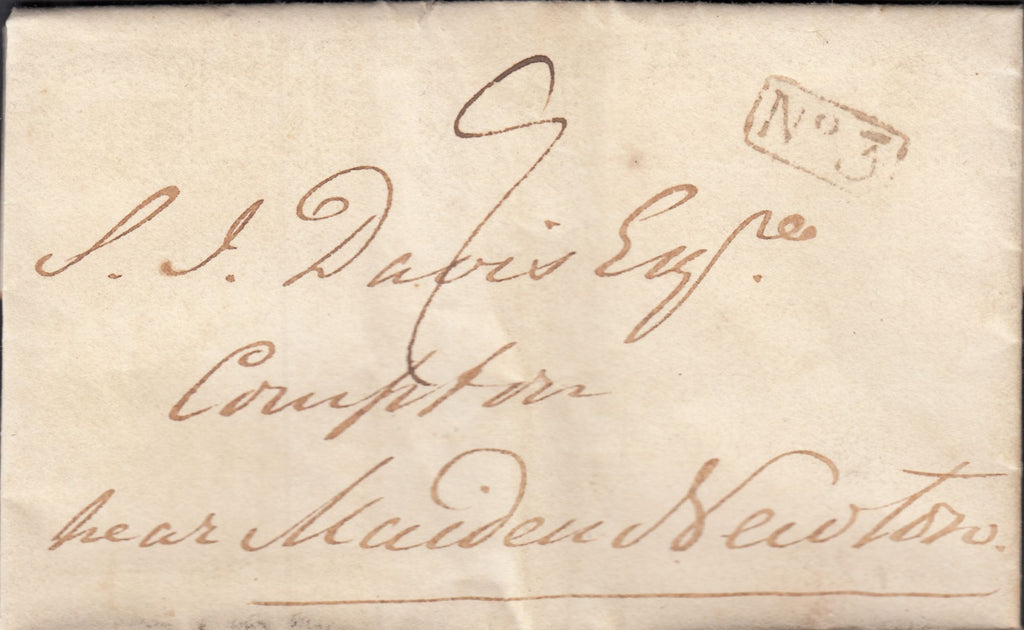 No 3
9
S. J. Davis Esqre.
Compton
near Maiden Newton.